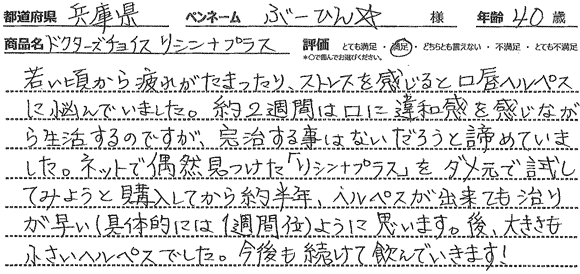 都道府県 兵庫県 ペンネーム ぶーひん☆ 様 年齢 40 歳
商品名 ドクターズチョイス リシン+プラス 評価 とても満足 ・ 満足 ・ どちらとも言えない ・ 不満足 ・ とても不満足
*○で囲んでお選びください。
若い頃から疲れがたまったり、ストレスを感じると口唇ヘルペス
に悩んでいました。約2週間は口に違和感を感じなが
ら生活するのですが、完治する事はないだろうと諦めていま
した。ネットで偶然見つけた「リシン+プラス」をダメ元で試し
てみようと購入してから約半年、ヘルペスが出来ても治り
が早い(具体的には1週間位)ように思います。後、大きさも
小さいヘルペスでした。今後も続けて飲んでいきます!